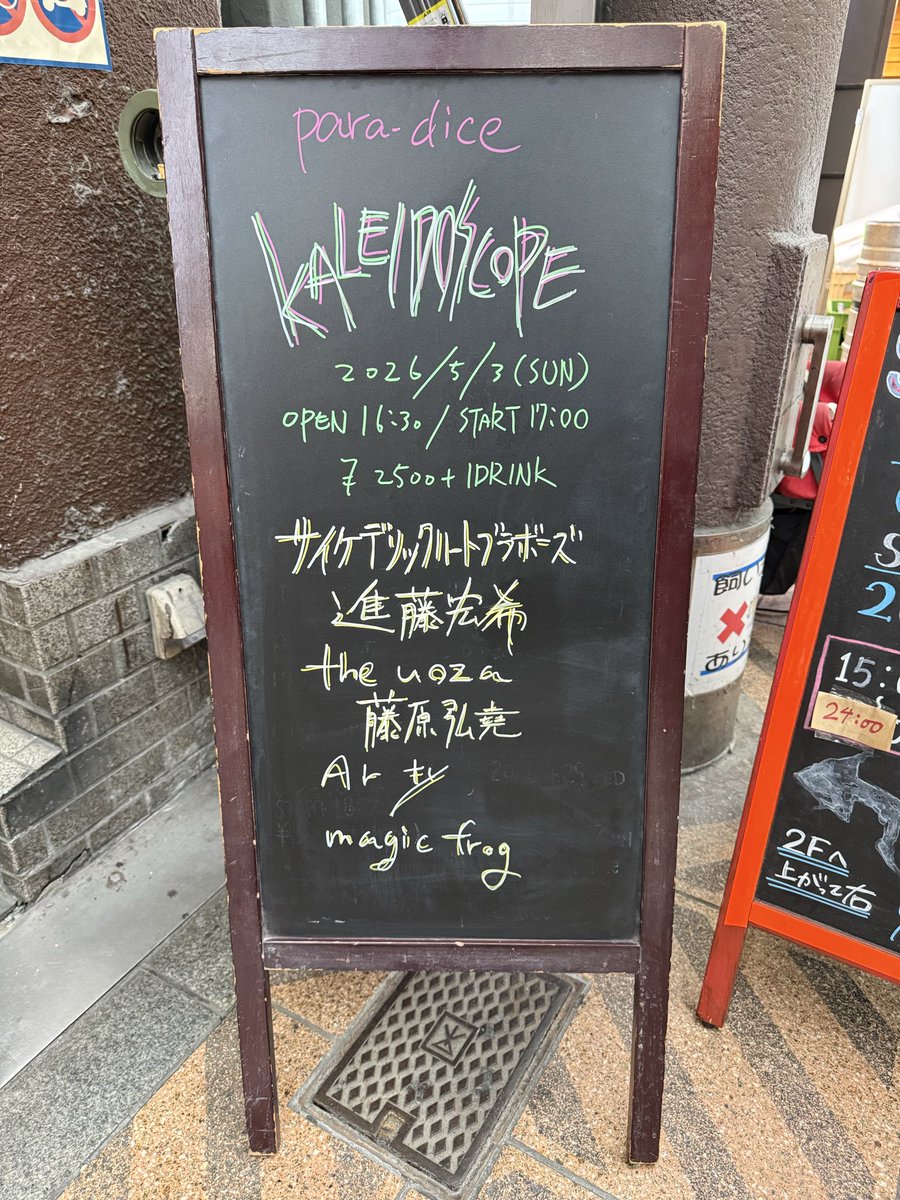 para-dice
KALEIDOSCOPE
2026/5/3(SUN)
OPEN 16:30/START 17:00
¥2500+1DRINK
サイケデリックハートブラボーズ
進藤宏希
the uoza
藤原弘堯
Ar ty
magic frog
15:0
24:00
2Fへ
上がって右